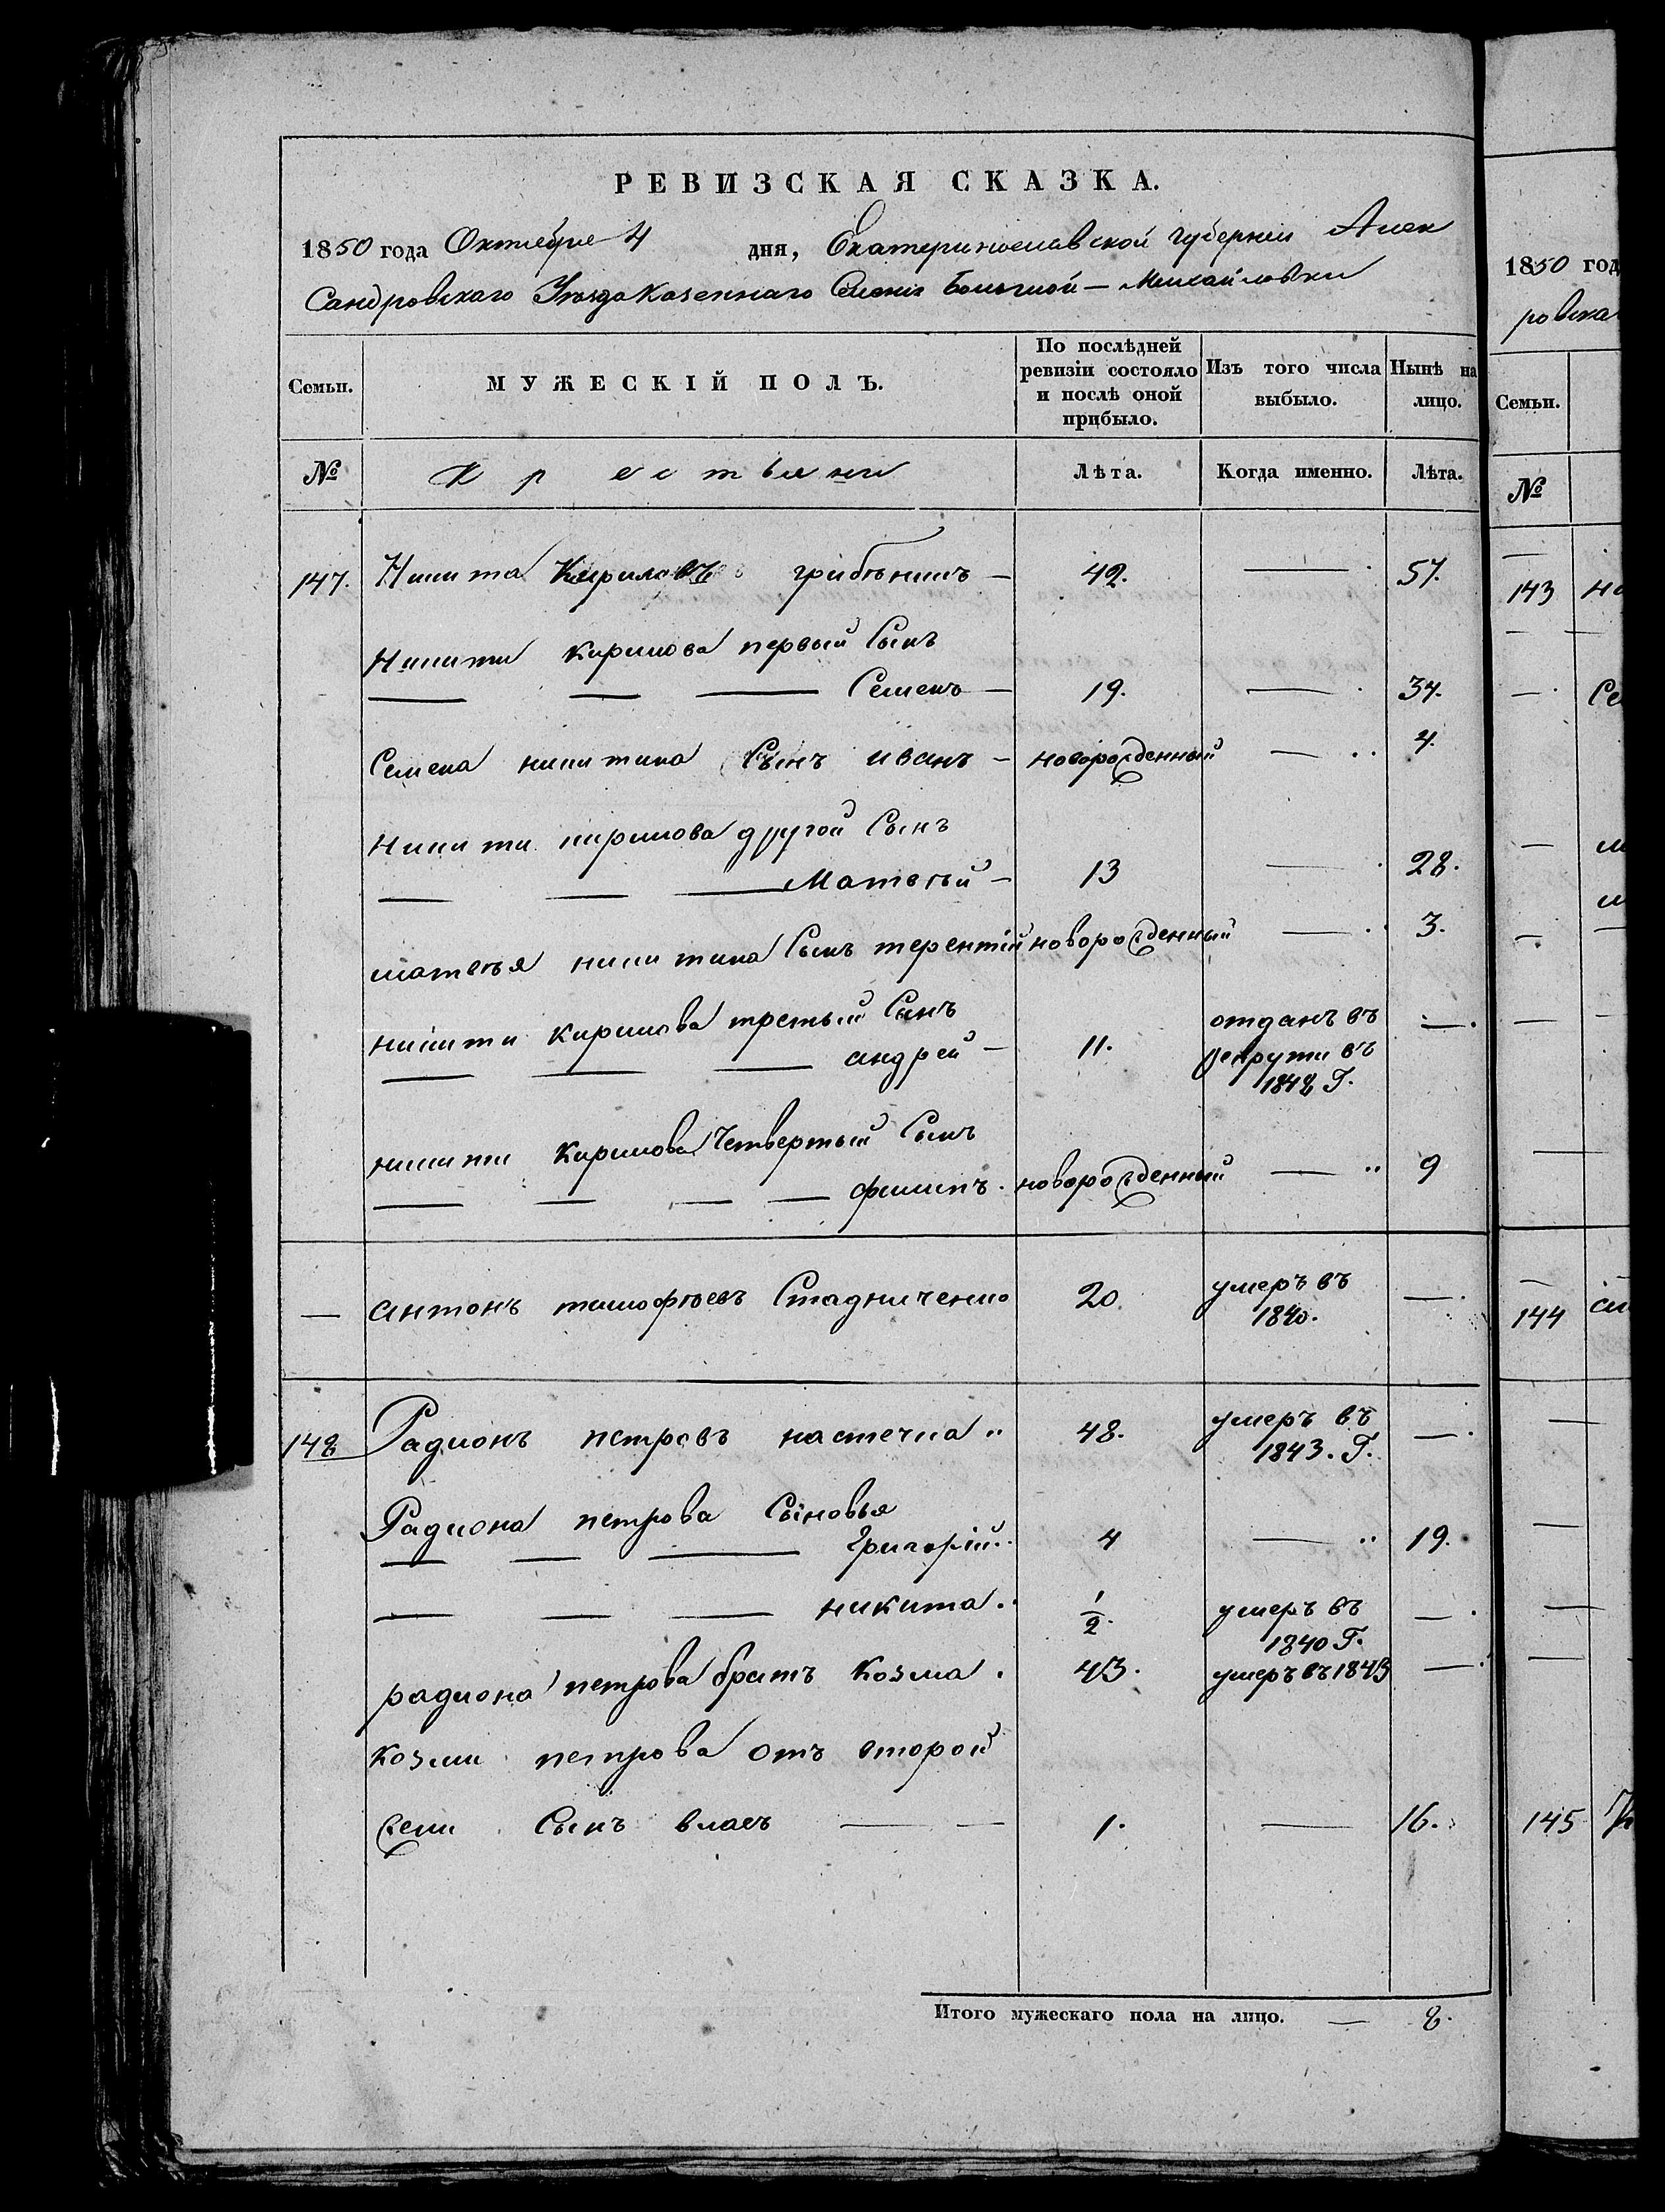 РЕВИЗСКАЯ СКАЗКА.
1850 года Октября 4 дня, Екатеринославской губернии Алек
Сандровскаго Уезда Казеннаго Селенія Большой — Михайловки
Семьи. МУЖЕСКІЙ ПОЛЪ. По послѣдней ревизіи состояло и послѣ оной прибыло. Изъ того числа выбыло. Нынѣ на лицо.
№ Крестьяни Лѣта. Когда именно. Лѣта.
147. Никита Кириловъ грибѣникъ — 42. — 57.
Никити кирилова первый Сынъ
— — — Семенъ — 19. — 34.
Семена никитина Сынъ иванъ — новорожденный — 4.
Никити кирилова другой Сынъ
— — — Матвѣй — 13 — 28.
матвѣя никитина Сынъ терентій новорожденный — 3.
никити кирилова третьий Сынъ отданъ въ
— — — андрей — 11. рекрути въ —
1848 Г.
никити кирилова Четвертый Сынъ
— — — — филипъ. новорожденный — 9
— антонъ тимофѣевъ Стадниченко 20. умеръ въ —
1840.
148 Радионъ петровъ настечка 48. умеръ въ —
1843. Г.
Радиона петрова Сыновья
— — — Григорій 4 — 19.
— — — никита 1/2. умеръ въ —
1840 Г.
радиона петрова братъ Козма. 43. умеръ въ 1843 —
козми петрова отъ второй
жени Сынъ власъ — — 1. — 16.
Итого мужескаго пола на лицо. — 8.
1850 год
ровска
Семьи.
№
143
144
145